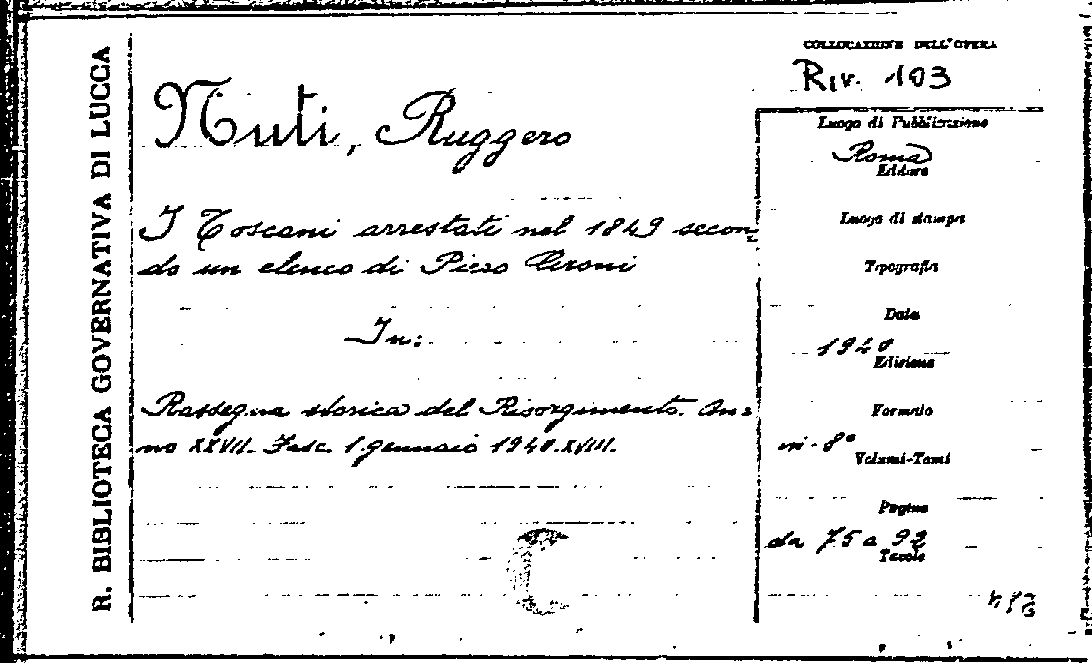 R. BIBLIOTECA GOVERNATIVA DI LUCCA
COLLOCAZIONE DELL'OPERA
Riv. 103
Nuti, Ruggero
I Toscani arrestati nel 1849 secon-
do un elenco di Piero Cironi
In:
Rassegna storica del Risorgimento. An-
no XXVII. Fasc. 1. gennaio 1940.XVIII.
Luogo di Pubblicazione
Roma
Editore
Luogo di stampa
Tipografia
Data
1940
Edizione
Formato
in-8°
Volumi-Tomi
Pagine
da 75 a 92
Tavole